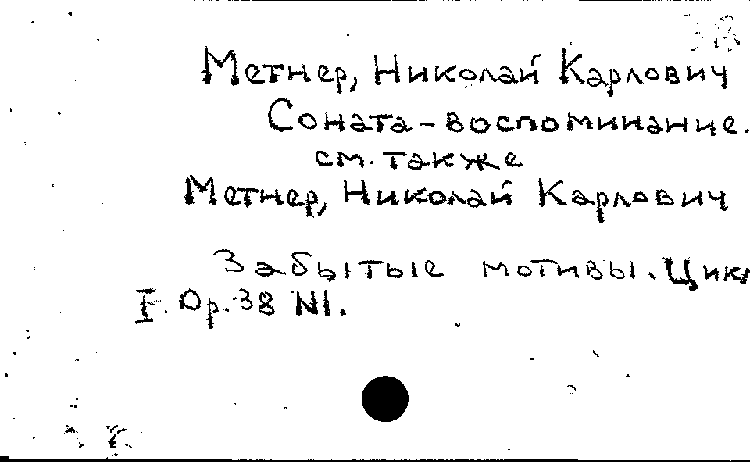 Метнер, Николай Карлович
Соната-воспоминание.
см. также
Метнер, Николай Карлович
Забытые мотивы. Цикл
I. Op. 38 N1.